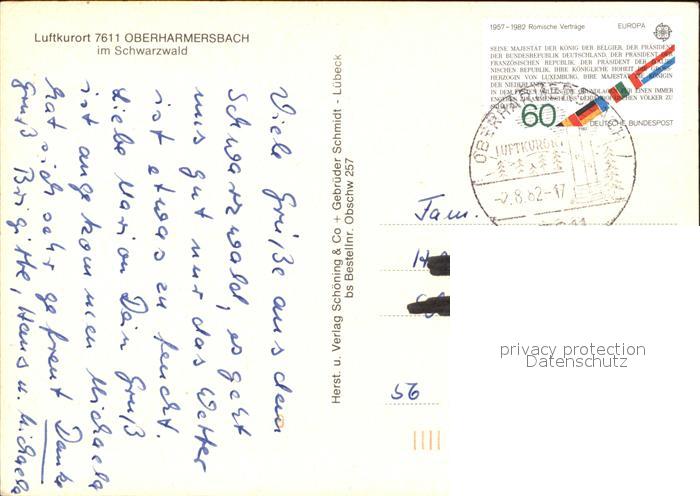 Luftkurort 7611 OBERHARMERSBACH
im Schwarzwald
Viele Grüße aus dem
Schwarzwald, es geht
uns gut nur das Wetter
ist etwas zu feucht.
Liebe Marion Dein Gruß
ist angekommen Michaela
hat sich sehr gefreut Danke
Gruß Brigitte, Hans u. Michaela
Herst. u. Verlag Schöning & Co + Gebrüder Schmidt - Lübeck
bs BestellNr. Obschw 257
1957-1982 Römische Verträge EUROPA
SEINE MAJESTÄT DER KÖNIG DER BELGIER, DER PRÄSIDENT
DER BUNDESREPUBLIK DEUTSCHLAND, DER PRÄSIDENT DER
FRANZÖSISCHEN REPUBLIK, DER PRÄSIDENT DER
NISCHEN REPUBLIK, IHRE KÖNIGLICHE HOHEIT DIE
HERZOGIN VON LUXEMBURG, IHRE MAJESTÄT KÖNIGIN
DER NIEDERLANDE
60
DEUTSCHE BUNDESPOST
LUFTKURORT
-2.8.82-17
Fam.
56
privacy protection
Datenschutz